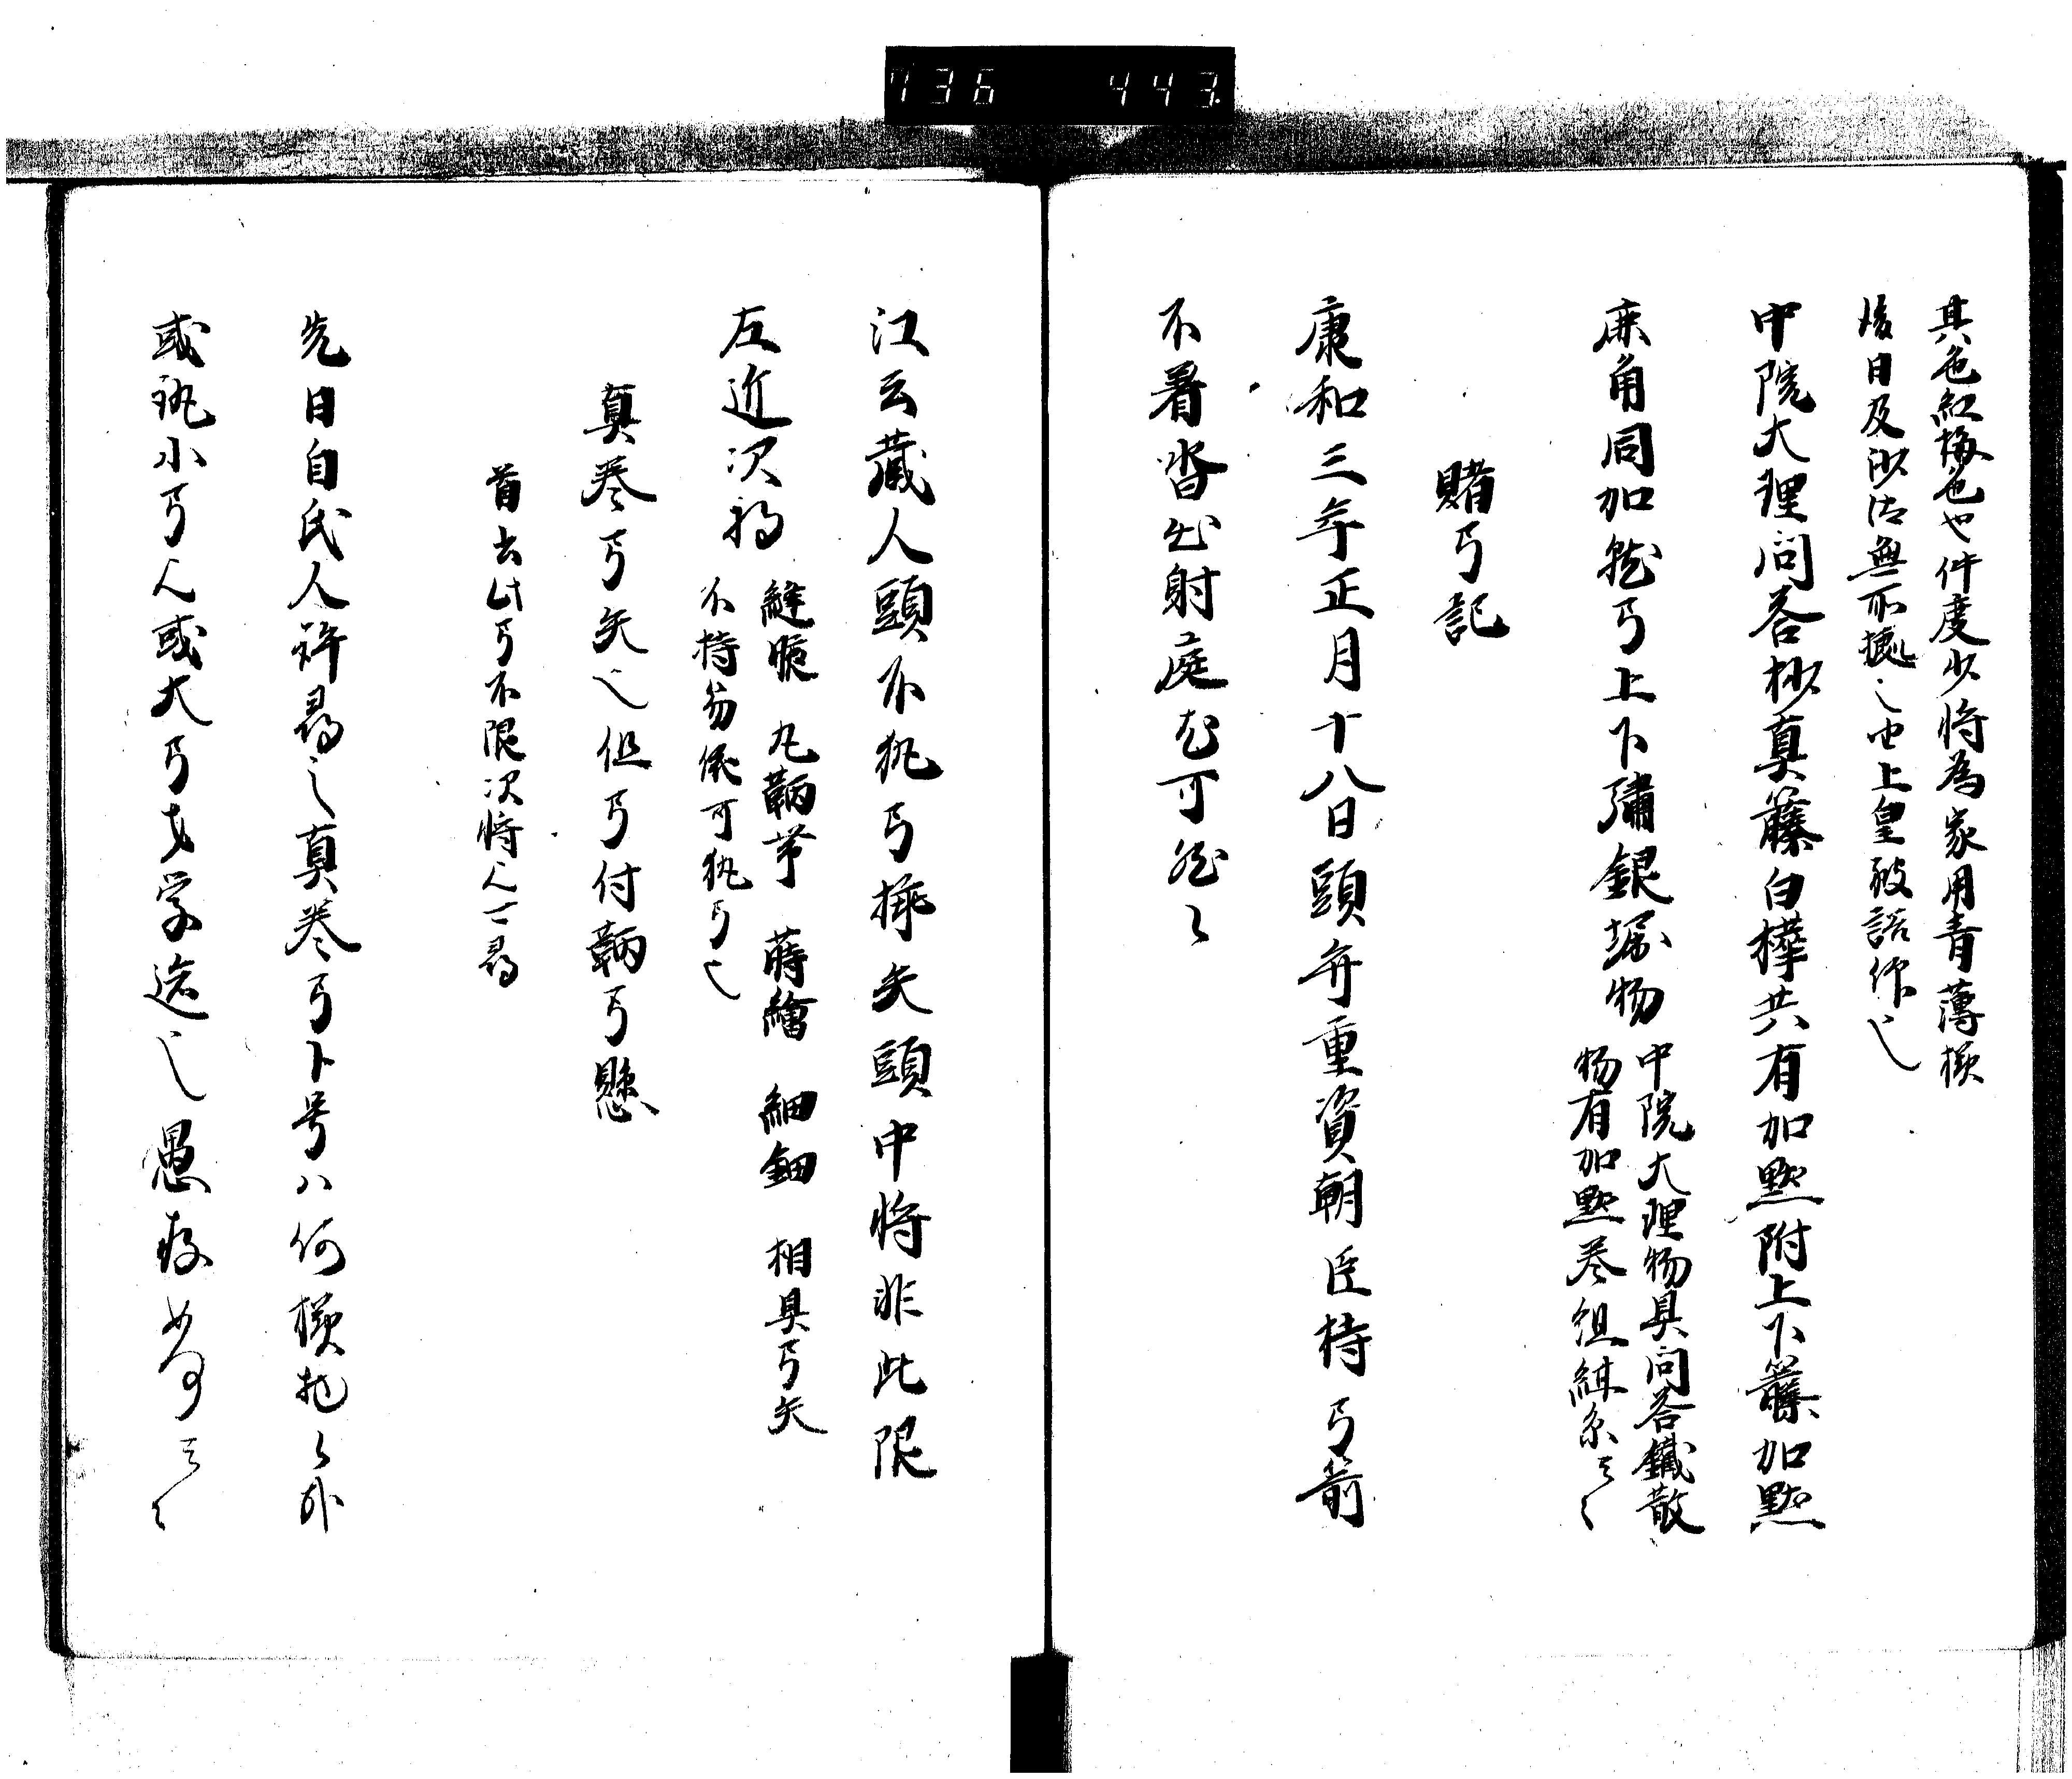 736 443
其色紅梅色也件度少将為家用青薄様
後日及沙汰無所擾之由上皇被語作也
中院大理問答抄真藤白樺共有加黙附上下籐加黙
麻角同加弓上下彇銀物
中院大理物具問答鐵散
物有加黙巻組緂糸云々
賭弓記
康和三年正月十八日頭弁重資朝臣持弓箭
不着沓出射庭尤可然々
江云蔵人頭不執弓挿矢頭中将非此限
左近次将
縫腋 丸鞆帯 蒔繪 細釼 相具弓矢
不持笏依可執弓也
真巻弓矢也但弓付鞆弓懸
首書此弓不限次将人可尋
先日自氏人許尋之真巻弓ト号ハ何様物ゝ外
或執小弓人或大弓学逃也愚存如何云々